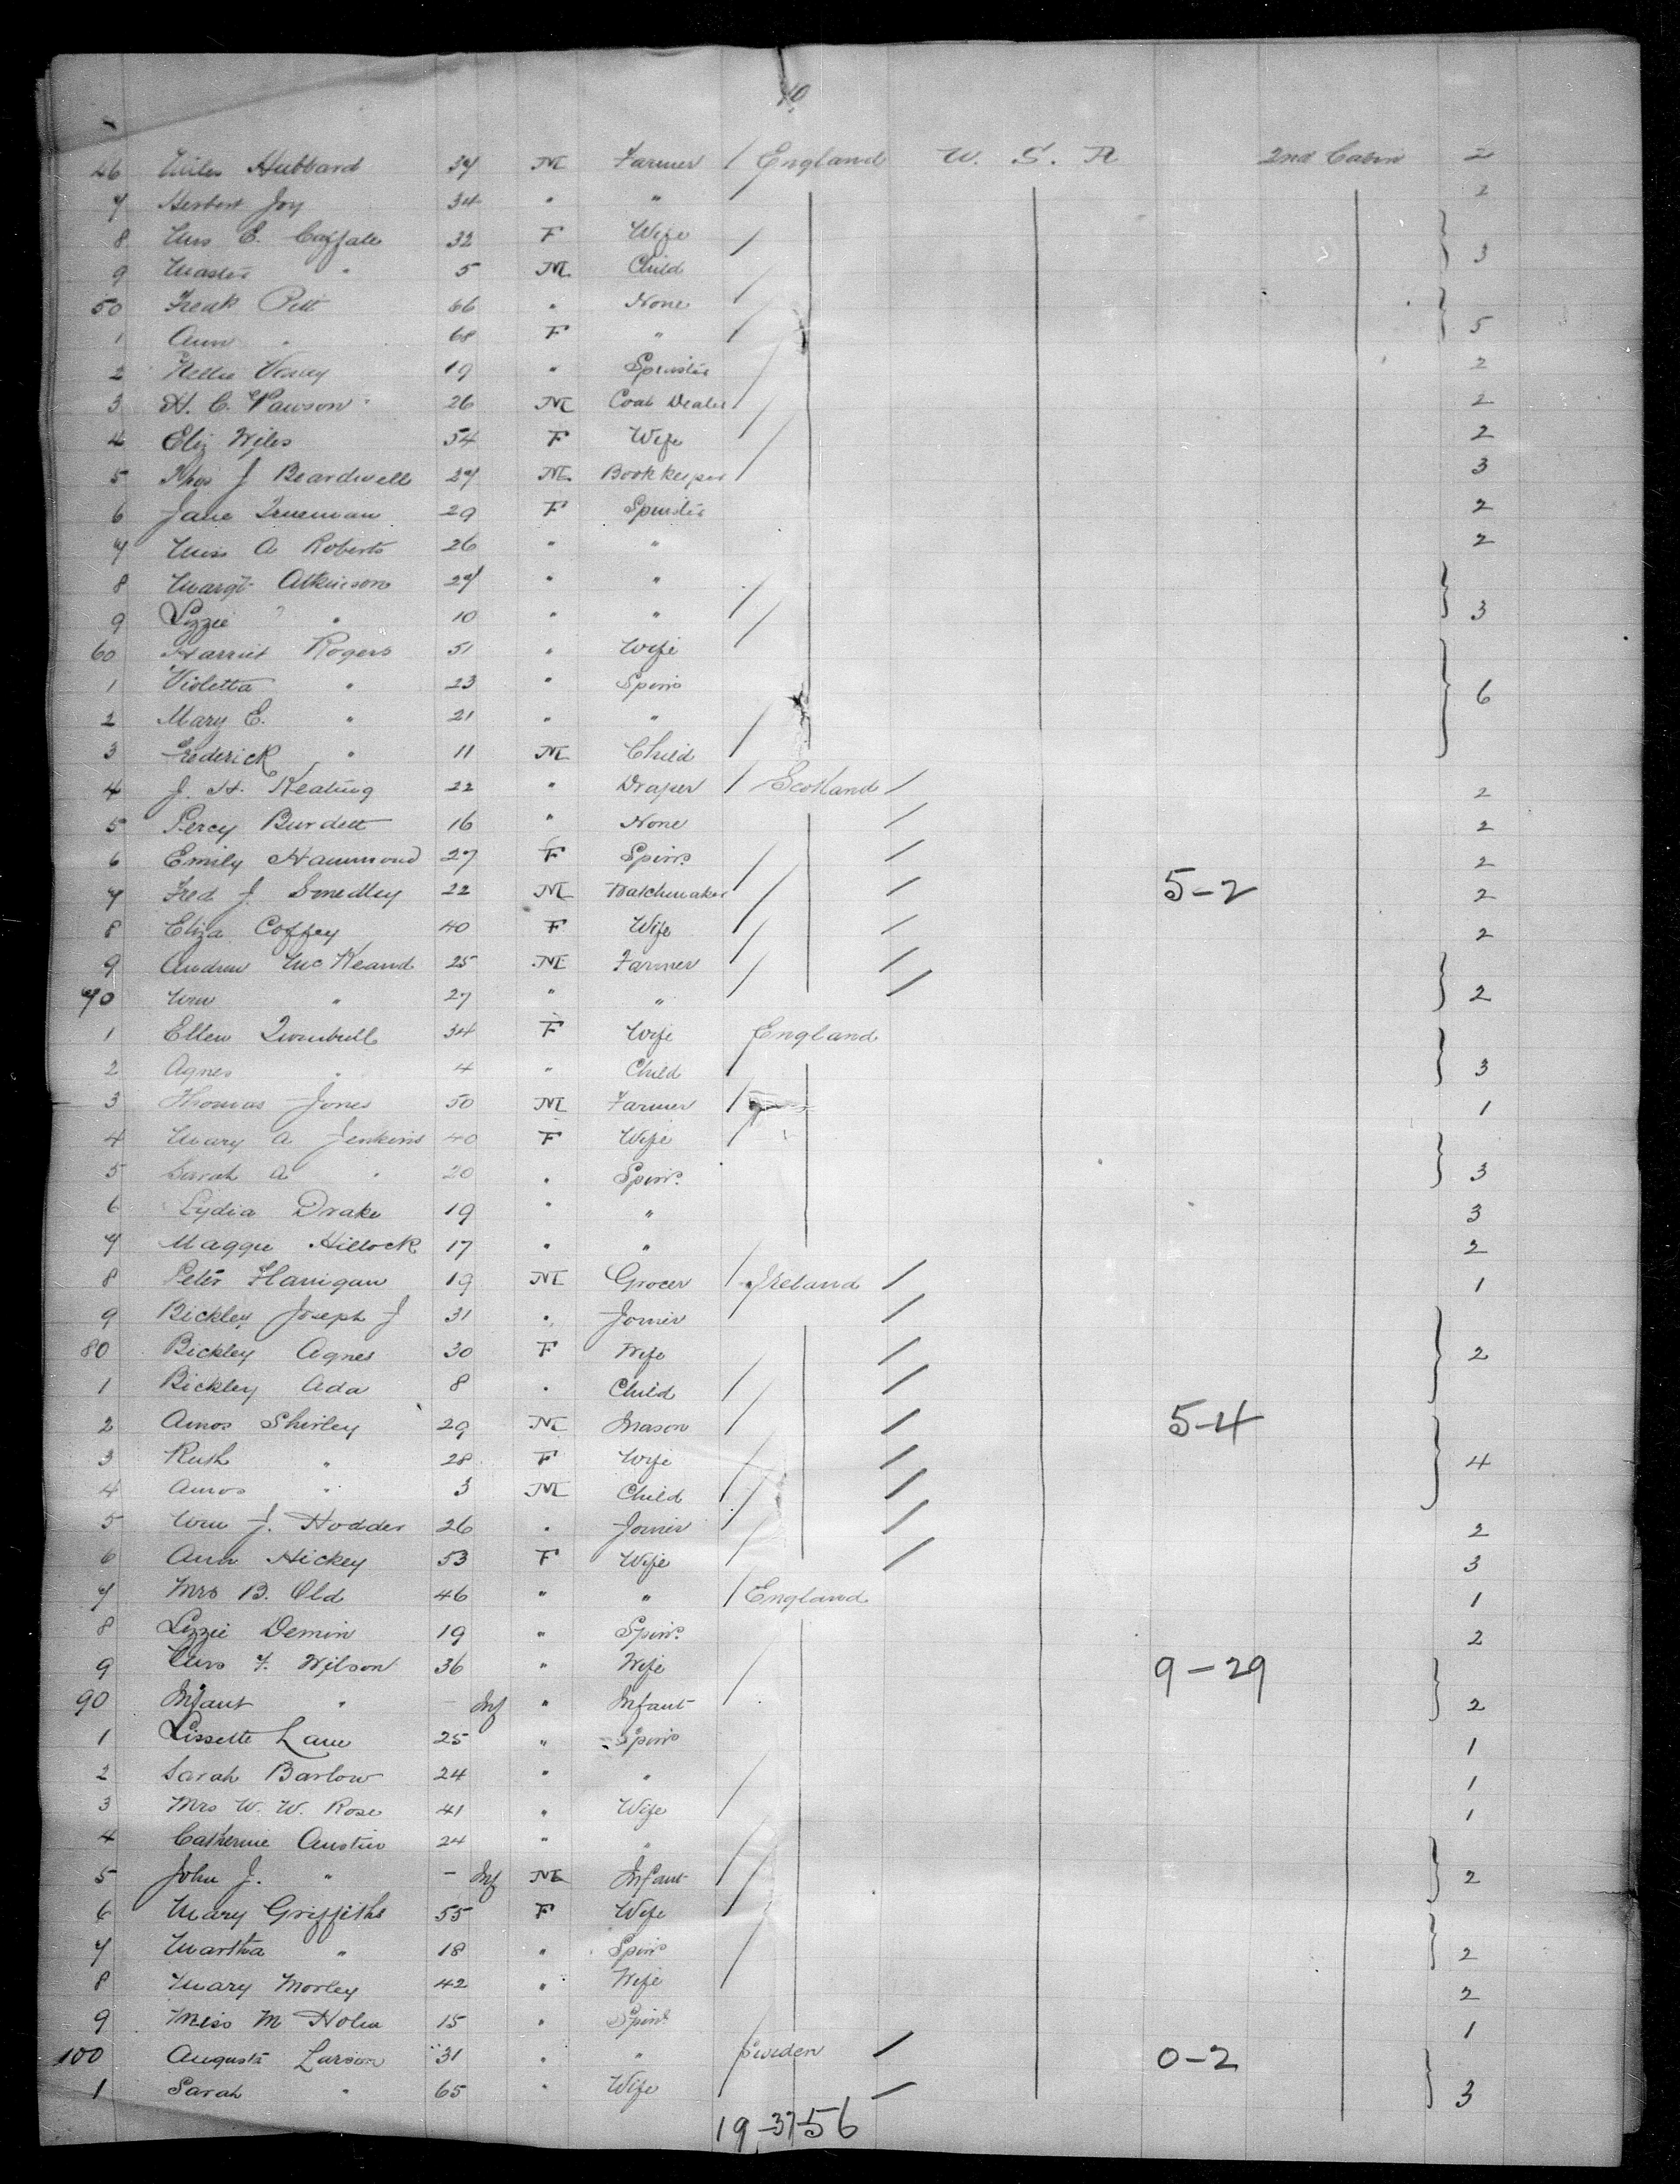 40
46 Miles Hubbard 34 M Farmer / England U. S. A 2nd Cabin 2
7 Herbert Joy 34 " " / 2
8 Mrs E. Caffale 32 F Wife /
9 Master " 5 M Child / } 3
50 Freak Pitt 66 " None /
1 Ann " 68 F " / } 5
2 Nellie 19 " Spinster / 2
3 H. C. Pawson 26 M Coal Dealer / 2
4 Eliz Wiles 54 F Wife / 2
5 Thos J Beardwell 27 M Bookkeeper / 3
6 Jane Trueman 29 F Spinster 2
7 Miss A Roberts 26 " " 2
8 Margt Atkinson 27 " " /
9 Lizzie " 10 " " / } 3
60 Harriet Rogers 51 " Wife
1 Violetta " 23 " Spinr
2 Mary E. " 21 " " / } 6
3 Frederick " 11 M Child /
4 J. H. Keating 22 " Draper / Scotland / 2
5 Percy Burdett 16 " None / 2
6 Emily Hammond 27 F Spinr / / 2
7 Fred J Smedley 22 M Watchmaker / / 5-2 2
8 Eliza Coffey 40 F Wife / / 2
9 Andrew McKeand 25 M Farmer / /
70 Wm " 27 " " / / } 2
1 Ellen Turnbull 34 F Wife England
2 Agnes " 4 " Child / } 3
3 Thomas Jones 50 M Farmer / 1
4 Mary A Jenkins 40 F Wife /
5 Sarah A " 20 " Spinr } 3
6 Lydia Drake 19 " " 3
7 Maggie Hillock 17 " " 2
8 Peter Flanigan 19 M Grocer / Ireland / 1
9 Bickley Joseph J 31 " Joiner / /
80 Bickley Agnes 30 F Wife / } 2
1 Bickley Ada 8 " Child / /
2 Amos Shirley 29 M Mason / / 5-4
3 Ruth " 28 F Wife / / } 4
4 Amos " 3 M Child / /
5 Wm J. Hodder 26 " Joiner / / 2
6 Ann Hickey 53 F Wife / / 3
7 Mrs B. Old 46 " " / England 1
8 Lizzie Demin 19 " Spinr 2
9 Mrs F. Wilson 36 " Wife / 9-29
90 Infant " - Inf " Infant / } 2
1 Lissette Lane 25 " Spinr 1
2 Sarah Barlow 24 " " / 1
3 Mrs W. W. Rose 41 " Wife / 1
4 Catherine Austin 24 " " /
5 John J. " - Inf M Infant / } 2
6 Mary Griffiths 55 F Wife /
7 Martha " 18 " Spinr / } 2
8 Mary Morley 42 " Wife / 2
9 Miss M 15 " Spinr 1
100 Augusta Larson 31 " " / Sweden / 0-2
1 Sarah " 65 " Wife / / } 3
19-37-56